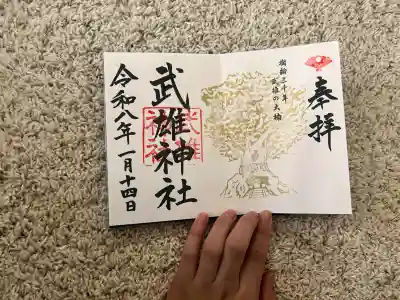 奉拝
樹齢三千年
武雄の大楠
武雄神社
武雄神社
令和八年一月十四日